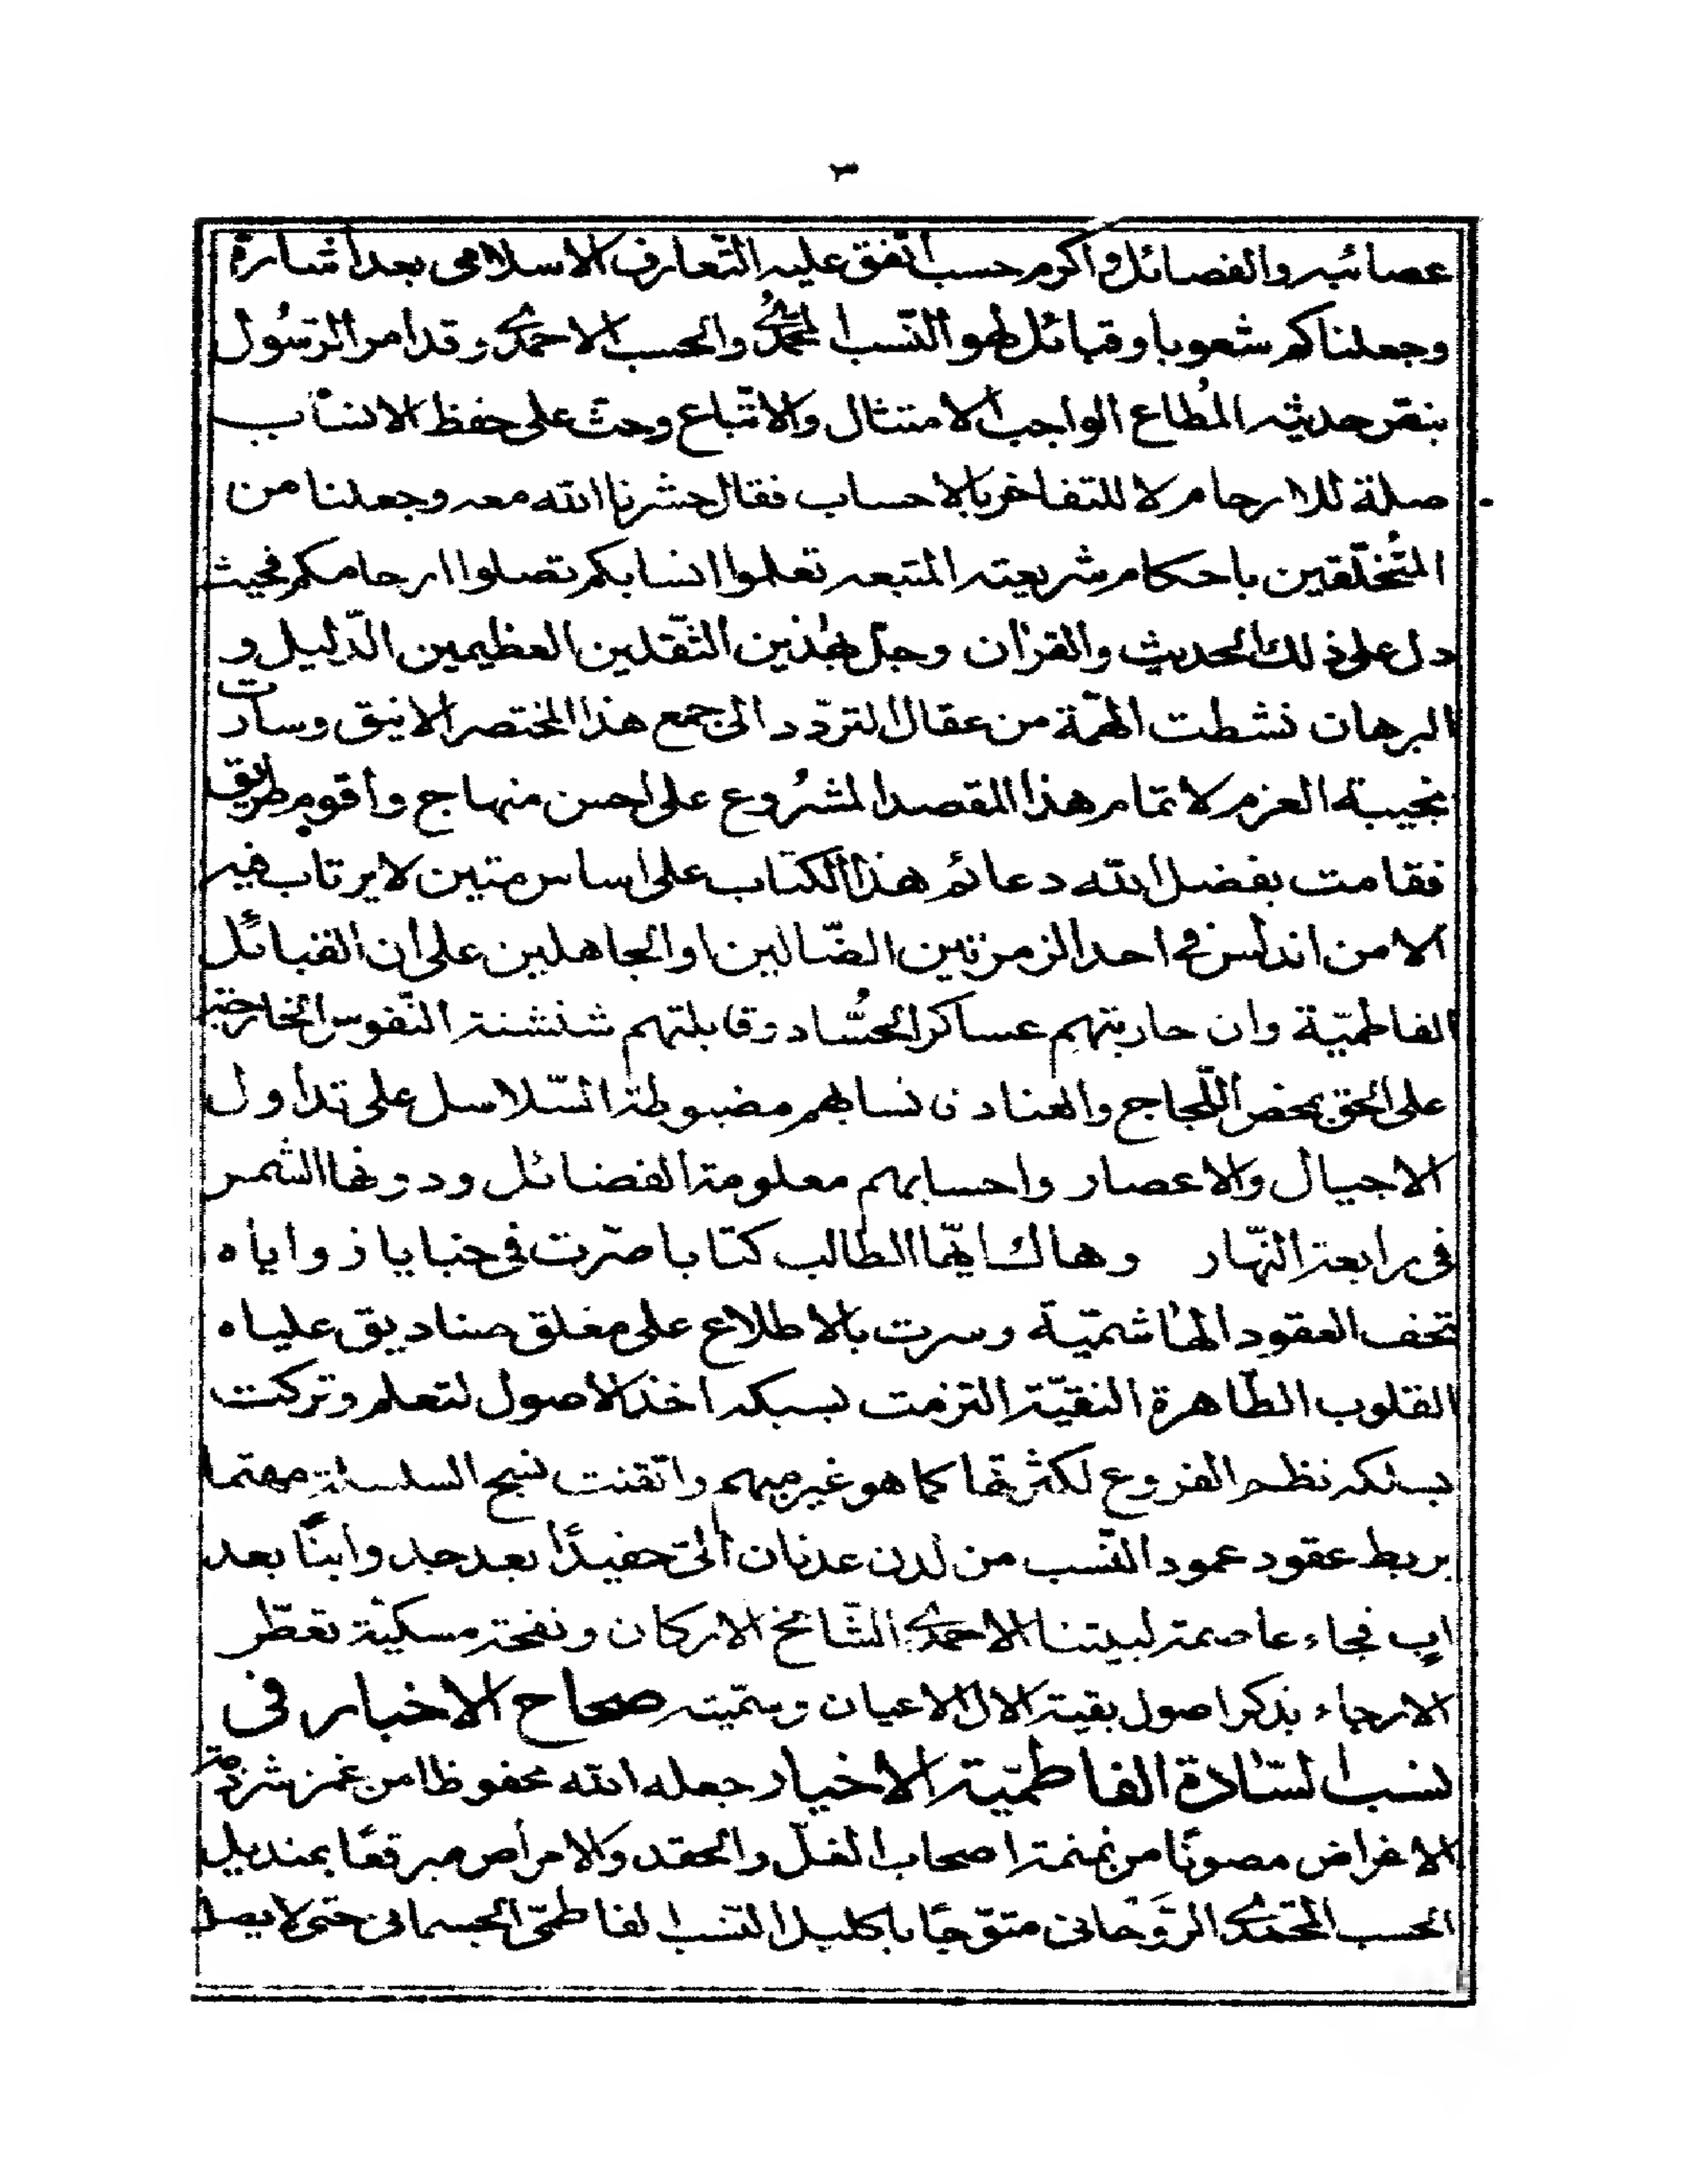 ٣
عصائبه والفصائل واكرم حسب اتّفق عليه التّعارف الاسلامى بعد اشارة
وجعلناكم شعوبا وقبائل لهو النّسب المحمّدىّ والحسب الاحمدىّ وقد امر الرّسُول
بنصّ حديثه المُطاع الواجب الامتثال والاتّباع وحثّ على حفظ الانسَاب
صلة للارحام لا للتفاخر بالاحساب فقال حشرنا الله معه وجعلنا من
المُتخلّقين باحكام شريعته المتبعه تعلموا انسابكم تصلوا ارحامكم فحيث
دل على ذلك الحديث والقرٰان وجلّ بهٰذين الثّقلين العظيمين الدّليل و
البرهان نشطت الهمّة من عقال التردّد الى جمع هذا المختصر الانيق وسارت
نجيبة العزم لاتمام هذا المقصد المشرُوع على احسن منهاج واقوم طريق
فقامت بفضل الله دعائم هذا الكتاب على اساس متين لا يرتاب فيه
الا من اندلس فى احد الزمرتين الضّالين او الجاهلين على ان القبائل
الفاطميّة وان حاربتهم عساكر الحسُّاد وقابلتهم شنشنة النّفوس الخارجة
على الحق بمحض اللّجاج والعناد فانسابهم مضبوطة السّلاسل على تداول
الاجيال والاعصار واحسابهم معلومة الفضائل ودونها الشمس
فى رابعة النّهار وهاك ايّها الطالب كتابا صرّت فى خبايا زواياه
تحف العقود الهاشميّة وسرت بالاطلاع على مغلق صناديق علياه
القلوب الطّاهرة النقيّة التزمت بسبكه اخذ الاصول لتعلم وتركت
بسلكه نظم الفروع لكثرتها كما هو غير مبهم واتقنت نسج السلسلة مهتما
بربط عقود عمود النّسب من لدن عدنان الىّ حفيدًا بعد جد وابنًا بعد
اب فجاء عاصمة لبيتنا الاحمدىّ الشّامخ الاركان ونفحة مسكيّة تعطّر
الارجاء بذكر اصول بقية الال الاعيان وسمّيته صحاح الاخبار فى
نسب السّادة الفاطميّة الاخيار جعله الله محفوظا من غمز شرذمة
الاغراض مصونًا من نمنمة اصحاب الغلّ والحقد والامراض مبرقعًا بمنديل
الحسب المحمّدىّ الرّوحانى متوّجًا باكليل النّسب الفاطمىّ الجسمانى حتى لا يصل